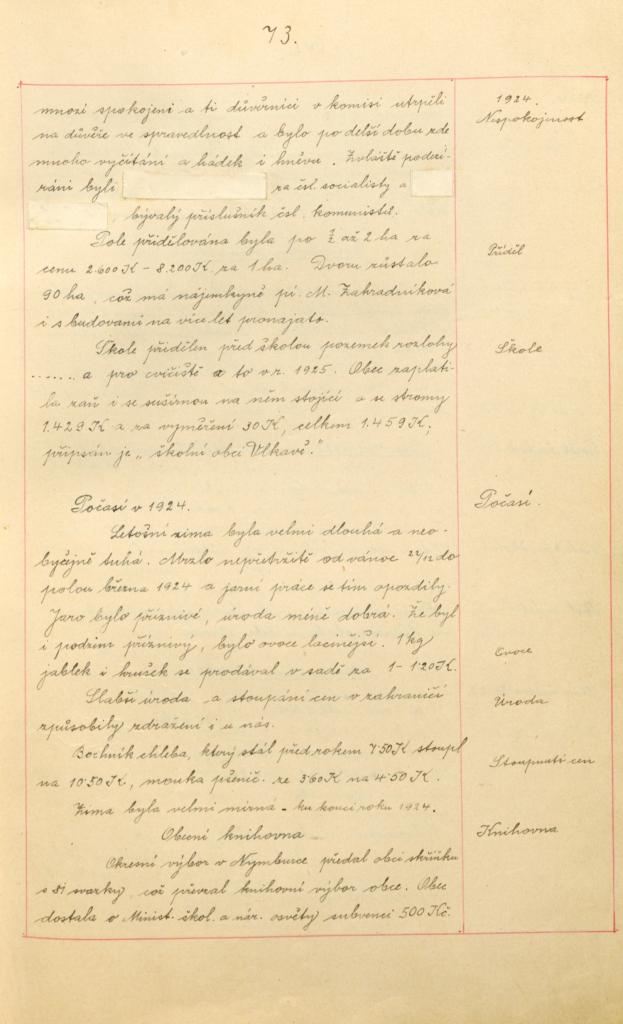 73.
mnozí spokojeni a ti důvěrníci v komisi utrpěli
na důvěře ve spravedlnost a bylo po delší dobu zde
mnoho vyčítání a hádek i hněvu. Zvláště podezí-
ráni byli za čsl. socialisty a
bývalý příslušník čsl. komunistů.
Pole přidělována byla po ½ až 2 ha za
cenu 2.600 K – 8.200 K za 1 ha. Dvoru zůstalo
90 ha, což má nájemkyně pí. M. Zahradníková
i s budovami na více let pronajato.
Škole přidělen před školou pozemek rozlohy
....... a pro cvičiště a to v r. 1925. Obec zaplati-
la zaň i se sušírnou na něm stojící a se stromy
1.429 K a za vyměření 30 K, celkem 1.459 K;
připsán je „školní obci Vlkavě."
Počasí v 1924.
Letošní zima byla velmi dlouhá a neo-
byčejně tuhá. Mrzlo nepřetržitě od vánoc 22/12 do
polou března 1924 a jarní práce se tím opozdily.
Jaro bylo příznivé, úroda méně dobrá. Že byl
i podzim příznivý, bylo ovoce lacinější. 1 kg
jablek i hrušek se prodával v sadě za 1 – 1·20 K.
Slabší úroda a stoupání cen v zahraničí
způsobily zdražení i u nás.
Bochník chleba, který stál před rokem 7·50 K stoupl
na 10·50 K, mouka pšenič. ze 3·60 K na 4·50 K.
Zima byla velmi mírná – ku konci roku 1924.
Obecní knihovna
Okresní výbor v Nymburce předal obci skříňku
s 81 svazky, což převzal knihovní výbor obce. Obec
dostala o Minist. škol. a nár. osvěty subvenci 500 Kč.
1924.
Nespokojenost
Příděl
Škole
Počasí.
Ovoce
Úroda
Stoupnutí cen
Knihovna